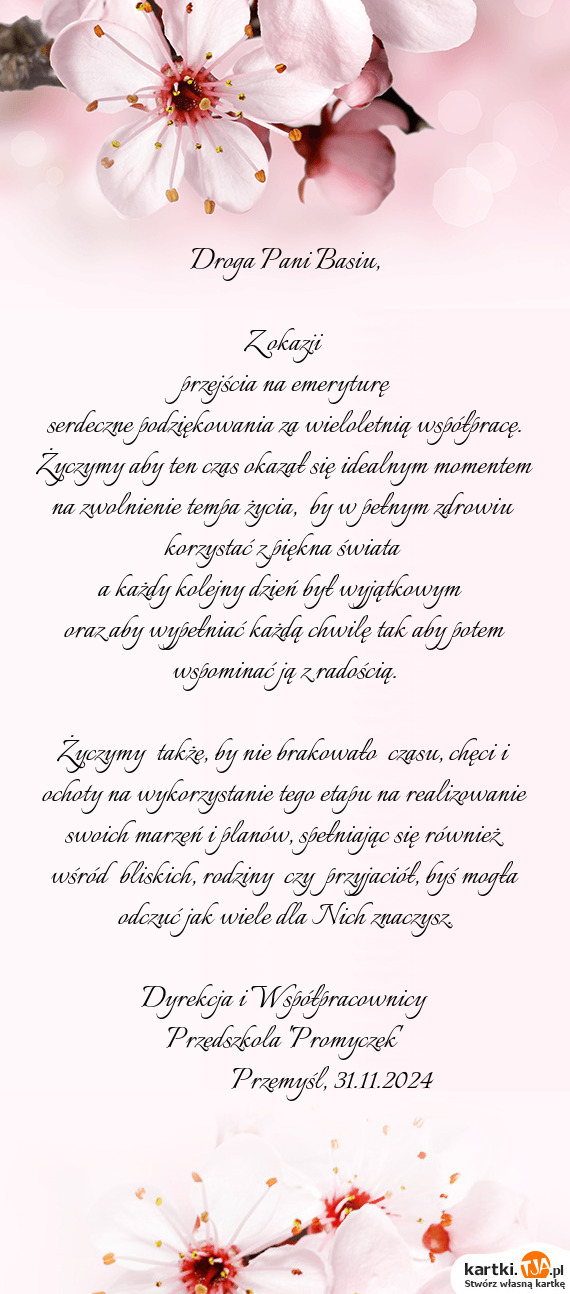 Droga Pani Basiu,
Z okazji
przejścia na emeryturę
serdeczne podziękowania za wieloletnią współpracę.
Życzymy aby ten czas okazał się idealnym momentem
na zwolnienie tempa życia, by w pełnym zdrowiu
korzystać z piękna świata
a każdy kolejny dzień był wyjątkowym
oraz aby wypełniać każdą chwilę tak aby potem
wspominać ją z radością.
Życzymy także, by nie brakowało czasu, chęci i
ochoty na wykorzystanie tego etapu na realizowanie
swoich marzeń i planów, spełniając się również
wśród bliskich, rodziny czy przyjaciół, byś mogła
odczuć jak wiele dla Nich znaczysz.
Dyrekcja i Współpracownicy
Przedszkola 'Promyczek'
Przemyśl, 31.11.2024
kartki.TJA.pl
Stwórz własną kartkę